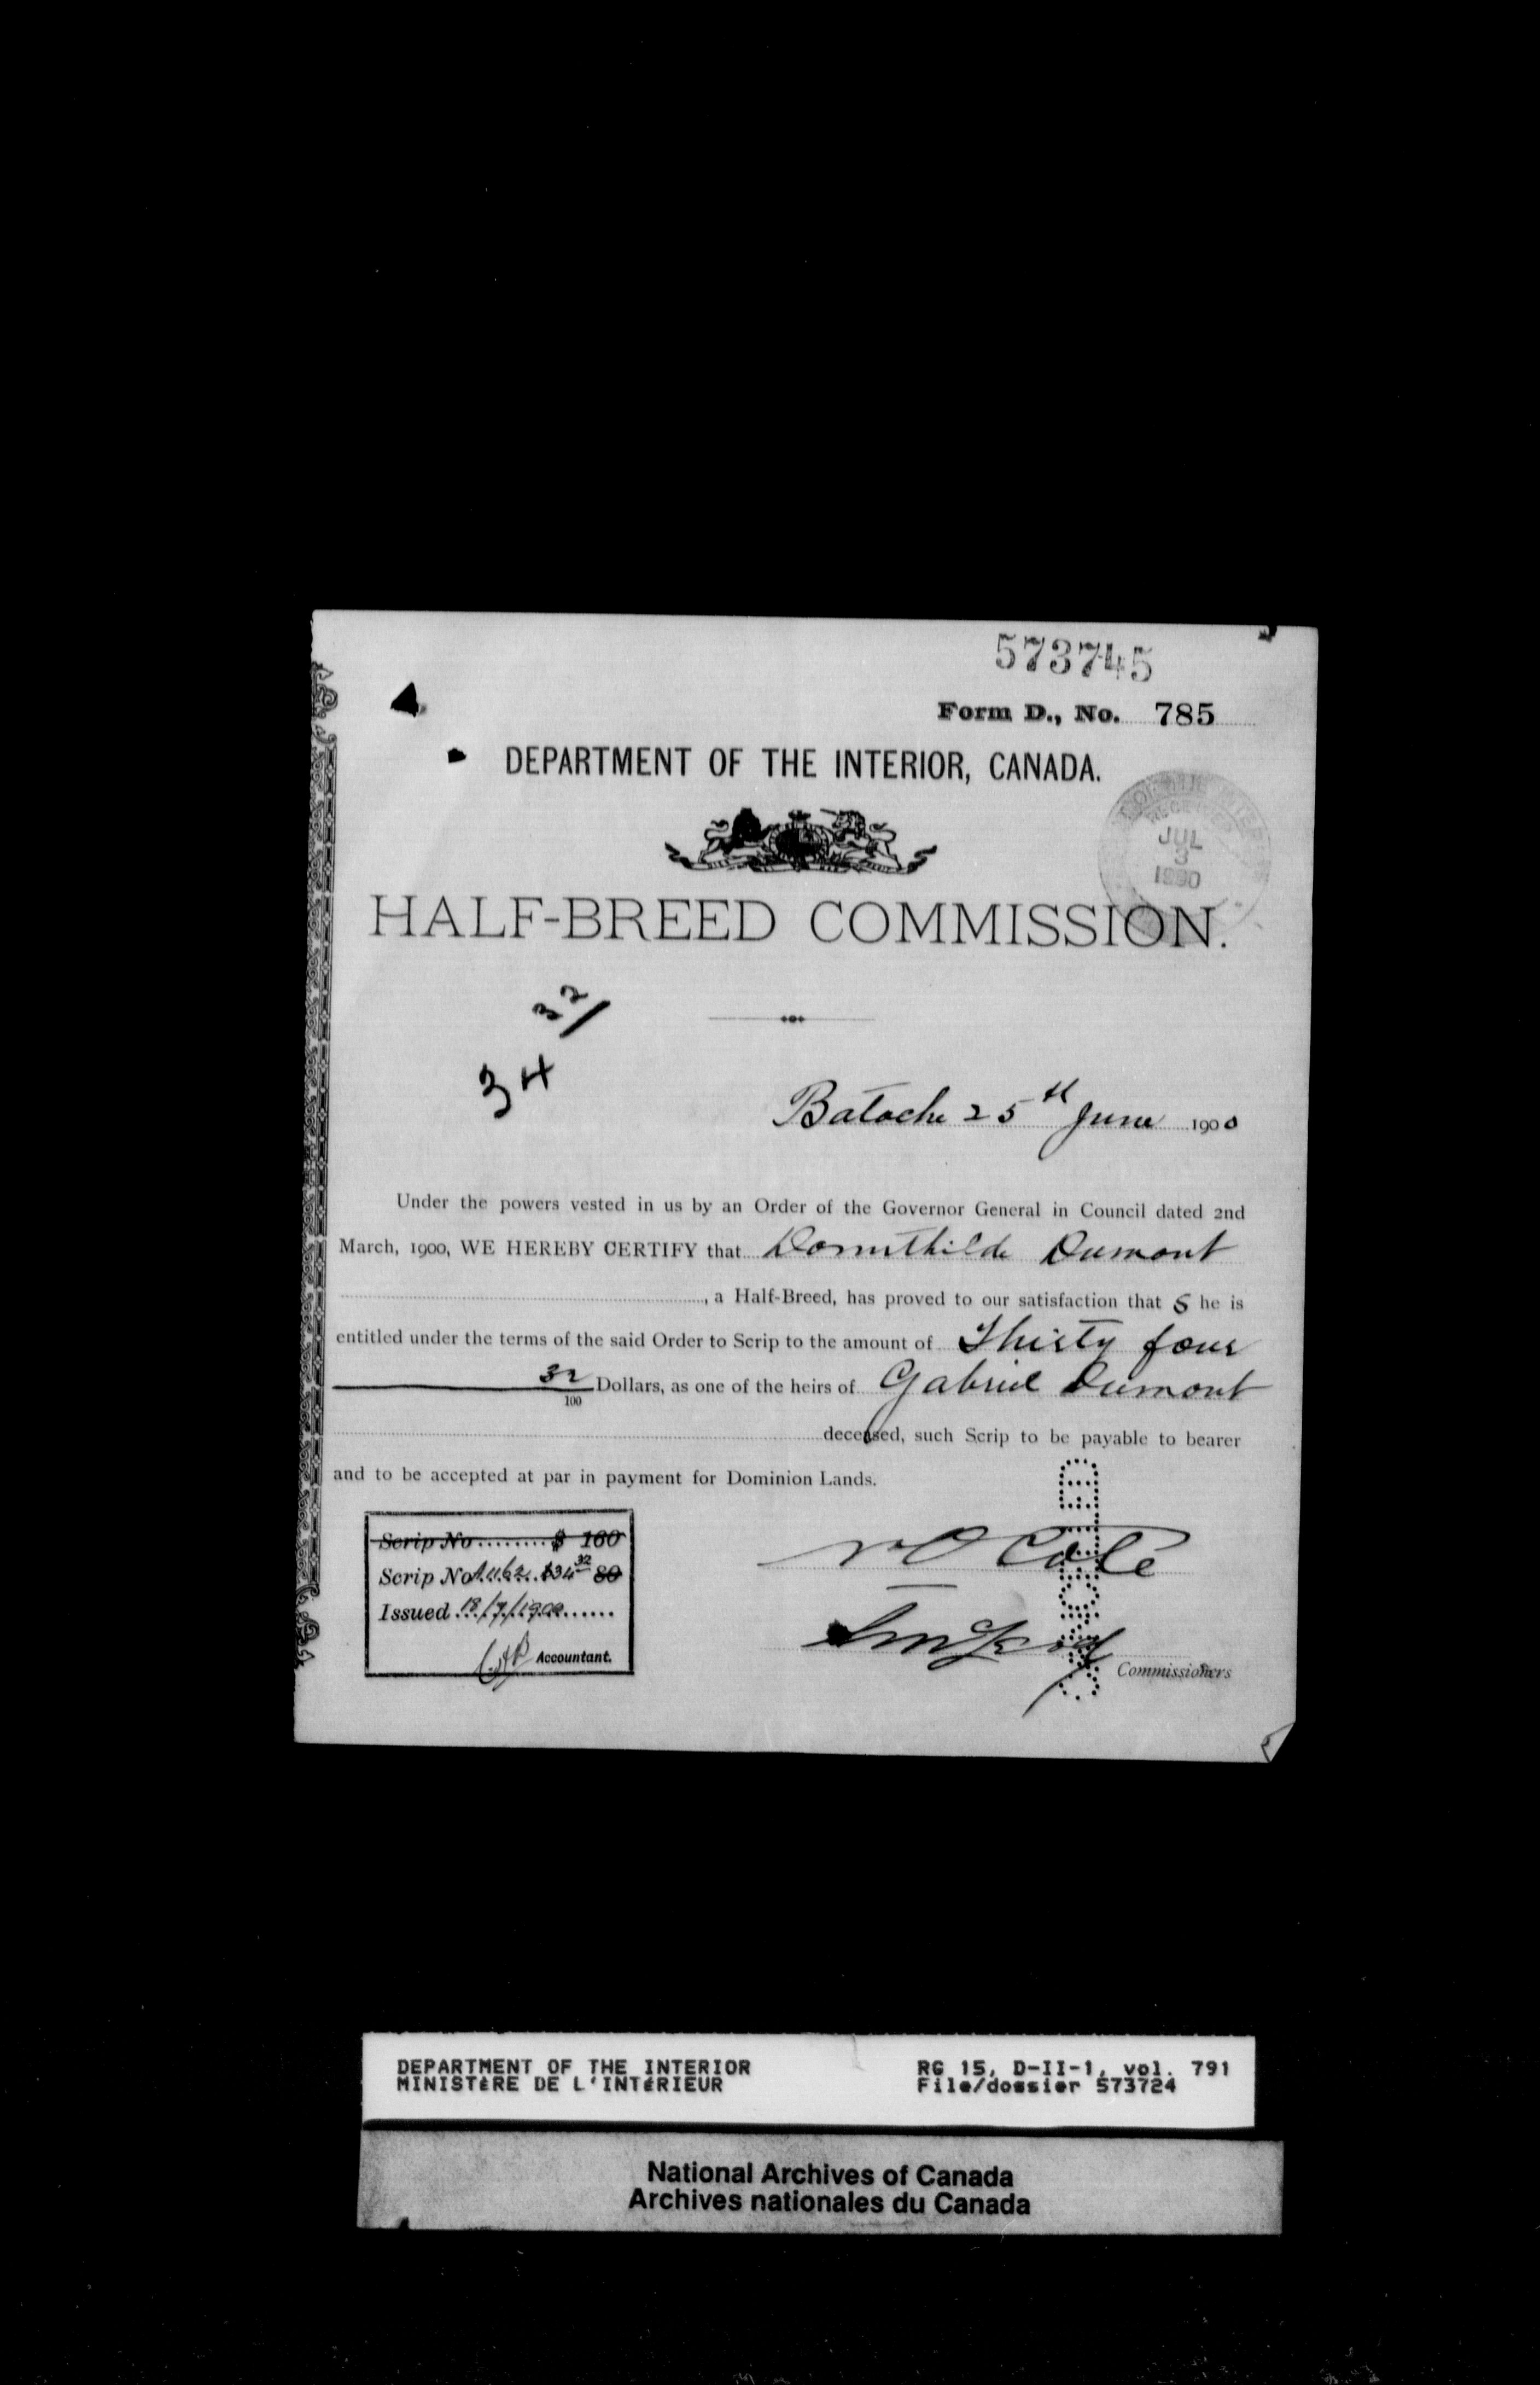 573745
Form D., No. 785
DEPARTMENT OF THE INTERIOR, CANADA.
RECEIVED
JUL
3
1900
HALF-BREED COMMISSION.
34 32/
Batoche 25th June 1900
Under the powers vested in us by an Order of the Governor General in Council dated 2nd
March, 1900, WE HEREBY CERTIFY that Domithilde Dumont
, a Half-Breed, has proved to our satisfaction that s he is
entitled under the terms of the said Order to Scrip to the amount of Thirty four
32/100 Dollars, as one of the heirs of Gabriel Dumont
deceased, such Scrip to be payable to bearer
and to be accepted at par in payment for Dominion Lands.
Scrip No ........ $ 160
Scrip No A.1162 $34 32 80
Issued 18/7/1900
Accountant.
Coté
Commissioners
DEPARTMENT OF THE INTERIOR
MINISTèRE DE L'INTéRIEUR
RG 15, D-II-1, vol. 791
File/dossier 573724
National Archives of Canada
Archives nationales du Canada